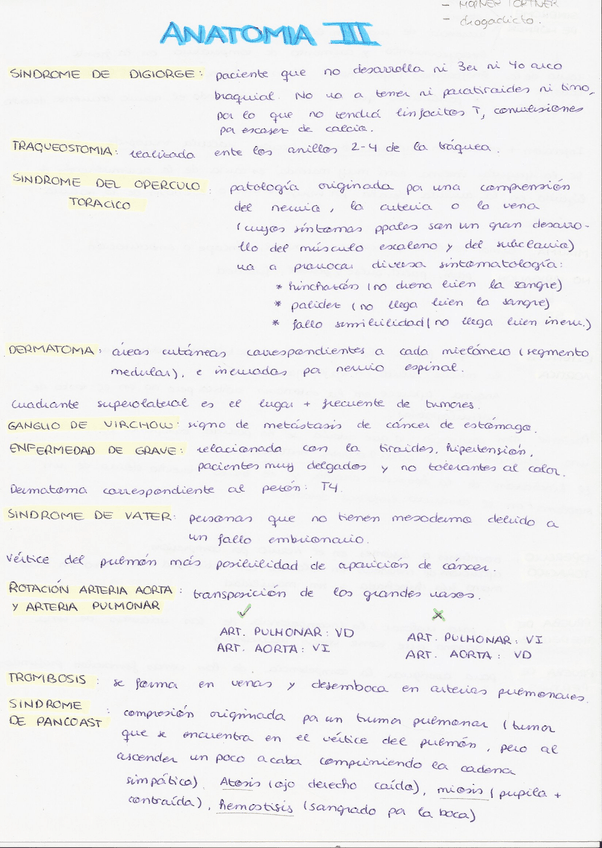 - drogadicto.
ANATOMIA III
SINDROME DE DIGIORGE: paciente que no desarrolla ni 3er ni 4o arco
braquial. No va a tener ni paratiroides ni timo,
por lo que no tendrá linfocitos T, convulsiones
por escasez de calcio.
TRAQUEOSTOMIA: realizada entre los anillos 2-4 de la tráquea.
SINDROME DEL OPERCULO TORACICO: patología originada por una comprensión
del nervio, la arteria o la vena
(cuyos síntomas ppales son un gran desarro-
llo del músculo escaleno y del subclavio)
va a provocar diversa sintomatología:
* hinchazón (no drena bien la sangre)
* palidez (no llega bien la sangre)
* fallo sensibilidad (no llega bien inerv.)
DERMATOMA: áreas cutáneas correspondientes a cada mielómero (segmento
medular), e inervadas por nervio espinal.
Cuadrante superolateral es el lugar + frecuente de tumores.
GANGLIO DE VIRCHOW: signo de metástasis de cáncer de estómago.
ENFERMEDAD DE GRAVE: relacionada con la tiroides, hipertensión,
pacientes muy delgados y no tolerantes al calor.
Dermatoma correspondiente al pezón: T4.
SINDROME DE VATER: personas que no tienen mesodermo debido a
un fallo embrionario.
Vértice del pulmón más posibilidad de aparición de cáncer.
ROTACIÓN ARTERIA AORTA Y ARTERIA PULMONAR: transposición de los grandes vasos.
✓ ✗
ART. PULMONAR: VD ART. PULMONAR: VI
ART. AORTA: VI ART. AORTA: VD
TROMBOSIS: se forma en venas y desemboca en arterias pulmonares.
SINDROME DE PANCOAST: compresión originada por un tumor pulmonar (tumor
que se encuentra en el vértice del pulmón, pero al
ascender un poco acaba comprimiendo la cadena
simpática). Atosis (ojo derecho caído), miosis (pupila +
contraída), hemostisis (sangrado por la boca)